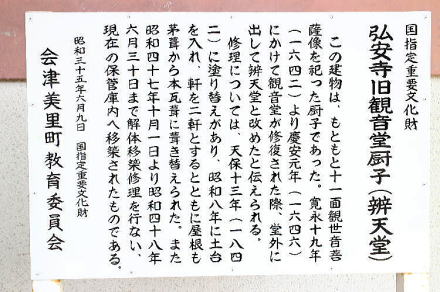 国指定重要文化財
弘安寺旧観音堂厨子(辨天堂)
この建物は、もともと十一面観世音菩
薩像を祀った厨子であった。寛永十九年
(一六四二)より慶安元年(一六四六)
にかけて観音堂が修復された際、堂外に
出して辨天堂と改めたと伝えられる。
修理については、天保十三年(一八四
二)に塗り替えがあり、昭和八年に土台
を入れ、軒を二軒とするとともに屋根も
茅葺から本瓦葺に葺き替えられた。また
昭和四十七年十月一日より昭和四十八年
六月三十日まで解体移築修理を行ない、
現在の保管庫内へ移築されたものである。
昭和三十五年六月九日 国指定重要文化財
会津美里町教育委員会